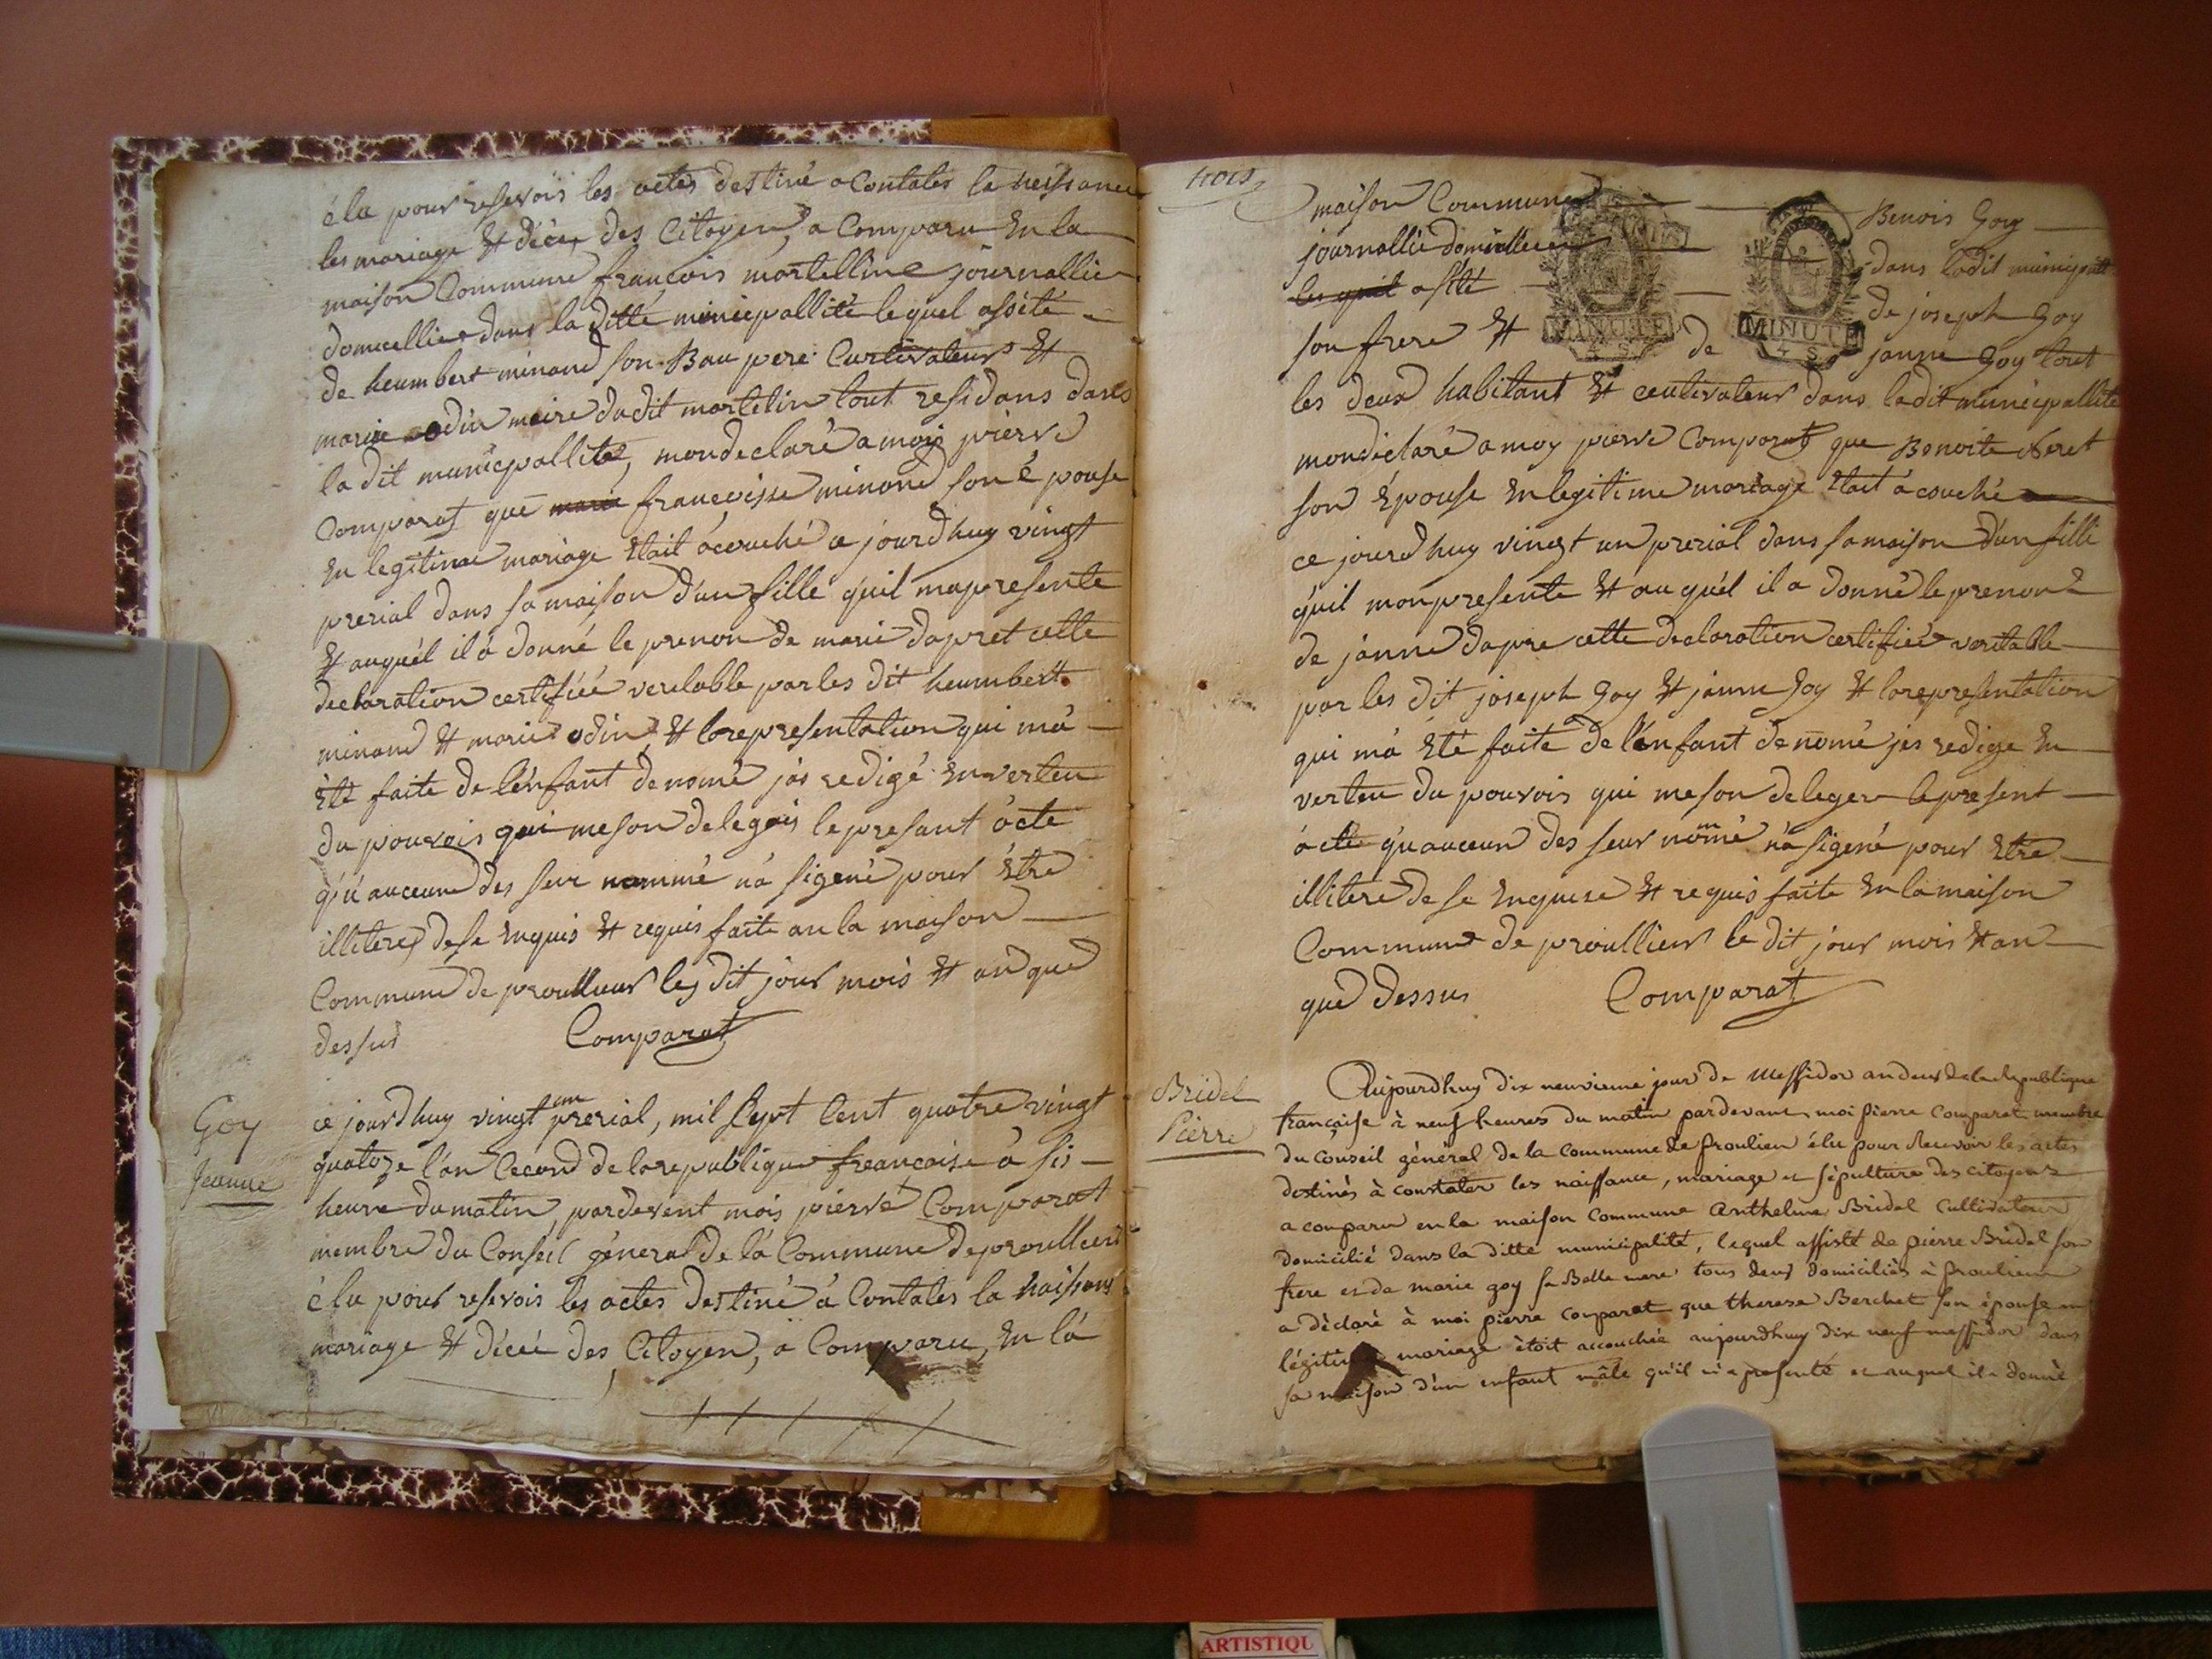 éla pour resevois les actes destiné a Contates la neissance
les mariage et décée des Citoyen, a Comparu En la
maison Commune francois martelline journallie
domicellier dans la ditte municipallité lequel assité
de heumbert minand son Bau pere Curtivateur et
marie odin maire dudit martelin tout residans dans
la dit municpallité, mondeclaré a mois pierre
Comparat que marie francoisse minand son épouse
En legitime mariage Etait acouché a jourdhuy vingt
prerial dans sa maison d'un fille quil mapresente
et auquél il à donné le prenon de marie dapret cette
declaration certifiée veritable par les dit heumbert
minand et marie odin, et la representation qui má
Eté faite de l'enfant denomé jás redigé En verteu
du pouvois qui meson delegais le presant ácte
qu'auceune des seur nommé ná sigené pour Etre
illiteres dese Enquis et requis faite an la maison
Commune de proullieur les dit jour mois et an que
dessus Comparat
Goy
Jeanne
ce jourdhuy vingt un prerial, mil Sept Cent quatre vingt
quatoze l'an Cecond de la republique francaise á sis
heure du matin, pardevent mois pierre Comparat
membre du Conseil géneral de lá Commune de proullieu
élu pour resevois les actes destiné á Contates la naissans
mariage et décée des Citoyen, a Comparu, En lá
trois
maison Commune Benois Goy
journallié domicellier dans ladit municipallité
les quil asité de joseph Goy
son frere et de janne Goy tout
les deux habitant et ceultivateur dans ladit municipallité
mondéclaré a moy pierre Comparat que Benoite Neret
son épouse En legitime mariage Etait acouché
ce jourdhuy vingt un prerial dans sa maison d'un fille
quil mon presente et au quél il a donné le prenon
de janne dapre cette declaration certifiée veritable
par les dit joseph Goy et janne Goy et la representation
qui má Eté faite de l'énfant denomé jes redige En
verteu du pouvois qui meson deleger le present
ácte qu'auceun des seur nomé ná sigené pour Etre
illitere de se Enquise et requis faite En la maison
Commune de proullieur le dit jour mois et an
que dessus Comparat
Bridel
Pierre
Aujourdhuy dix neuvieme jour de Messidor an deux de la Republique
francaise à neuf heures du matin pardevant moi pierre Comparat membre
du Conseil général de la commune de proulieu élu pour Recevoir les actes
destinés à constater les naissance, mariage et sépulture des citoyens
a comparu en la maison commune Anthelme Bridel Cultivateur
domicilié dans la ditte municipalité, lequel assisté de pierre Bridel son
frere et de marie goy sa Belle mere tous deux domiciliés à proulieu
a déclaré à moi pierre comparat que therese Berchet son épouse en
légitime mariage étoit accouchée aujourdhuy dix neuf messidor dans
sa maison d'un enfant mâle qu'il m'a presenté et auquel il a donné
MINUTE
4 S
MINUTE
4 S
ARTISTIQU